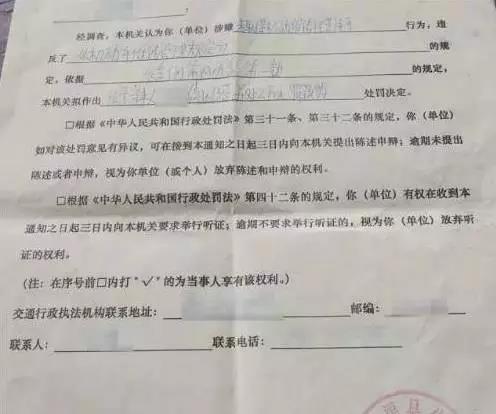 经调查，本机关认为你（单位）涉嫌 行为，违
反了 的规
定，依据 的规定，
本机关拟作出 处罚决定。
□根据《中华人民共和国行政处罚法》第三十一条、第三十二条的规定，你（单位）
如对该处罚意见有异议，可在接到本通知之日起三日内向本机关提出陈述申辩；逾期未提出
陈述或者申辩，视为你单位（或个人）放弃陈述和申辩的权利。
□根据《中华人民共和国行政处罚法》第四十二条的规定，你（单位）有权在收到本
通知之日起三日内向本机关要求举行听证；逾期不要求举行听证的，视为你（单位）放弃听
证的权利。
(注：在序号前□内打“√”的为当事人享有该权利。)
交通行政执法机构联系地址： 邮编：
联系人： 联系电话：
县